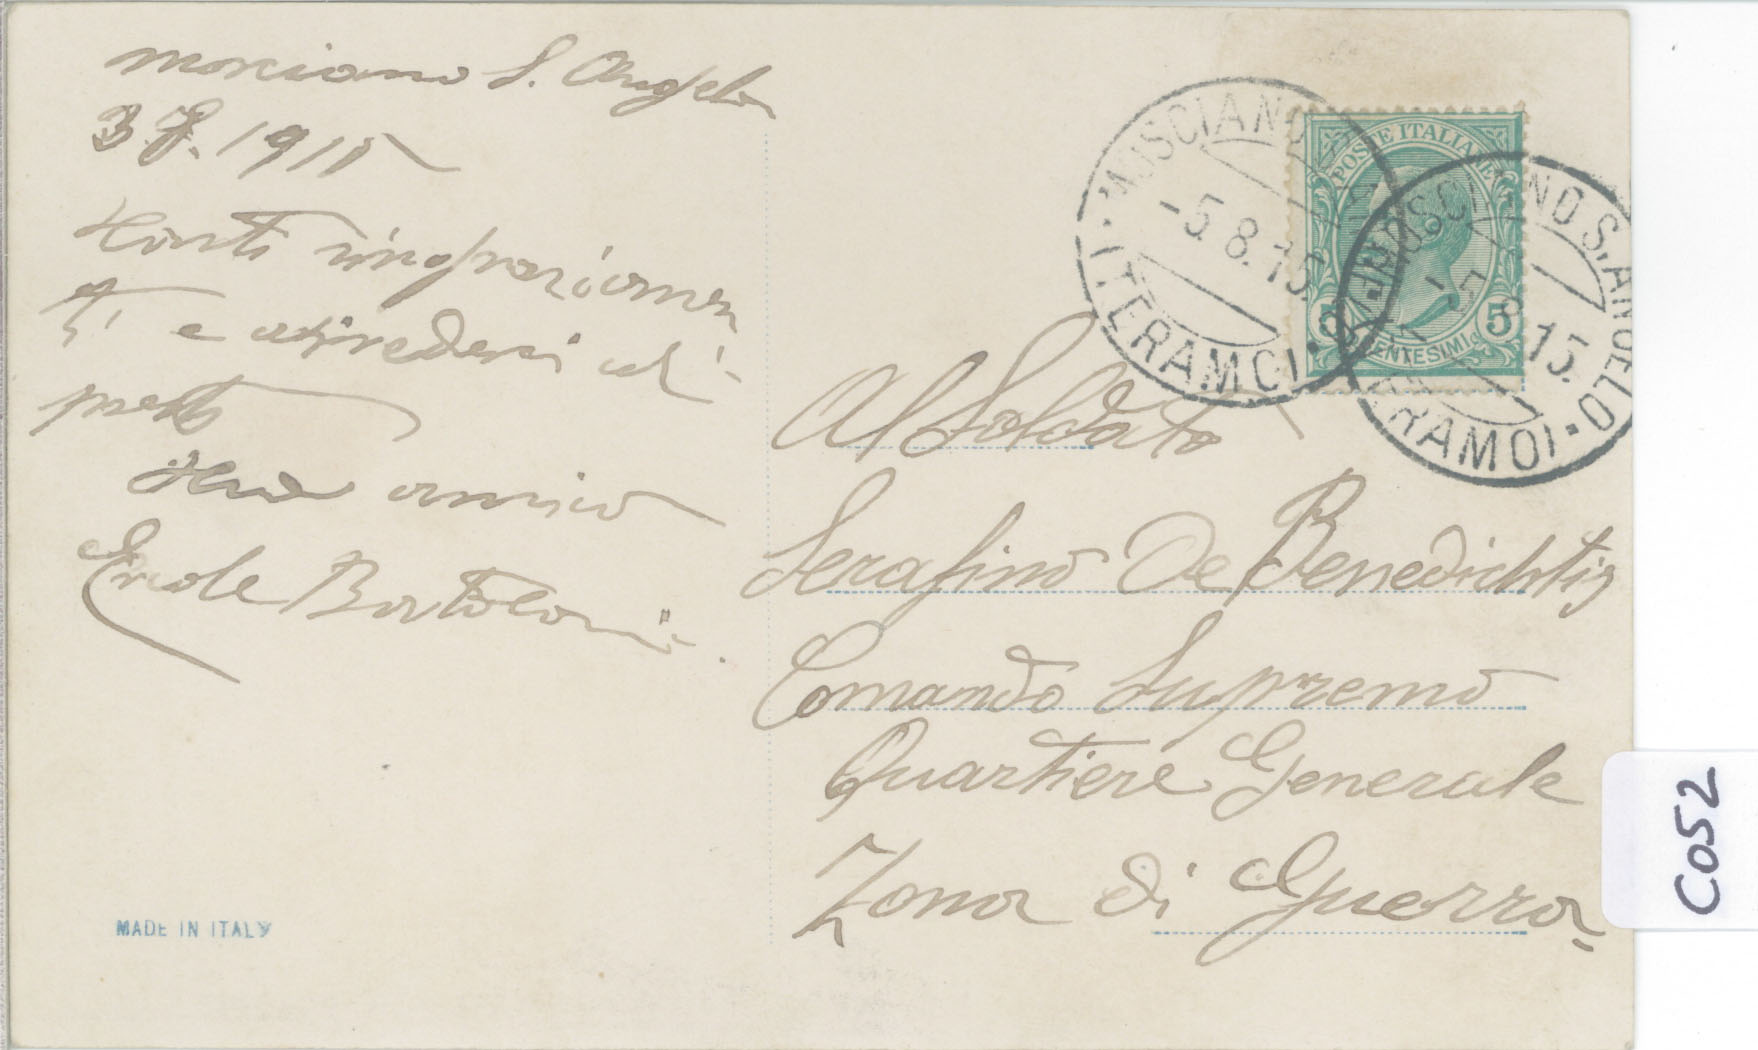 Mosciano S. Angelo
3.8.1915
Tanti ringraziamen
ti e arivederci al
presto
Tuo amico
Ercole Bartoloni
MADE IN ITALY
MOSCIANO S. ANGELO (TERAMO)
-5.8.15
MOSCIANO S. ANGELO (TERAMO)
8.15
POSTE ITALIANE
5 5
CENTESIMI
Al Soldato
Serafino De Benedichtis
Comando Supremo
Quartiere Generale
Zona di Guerra
C052